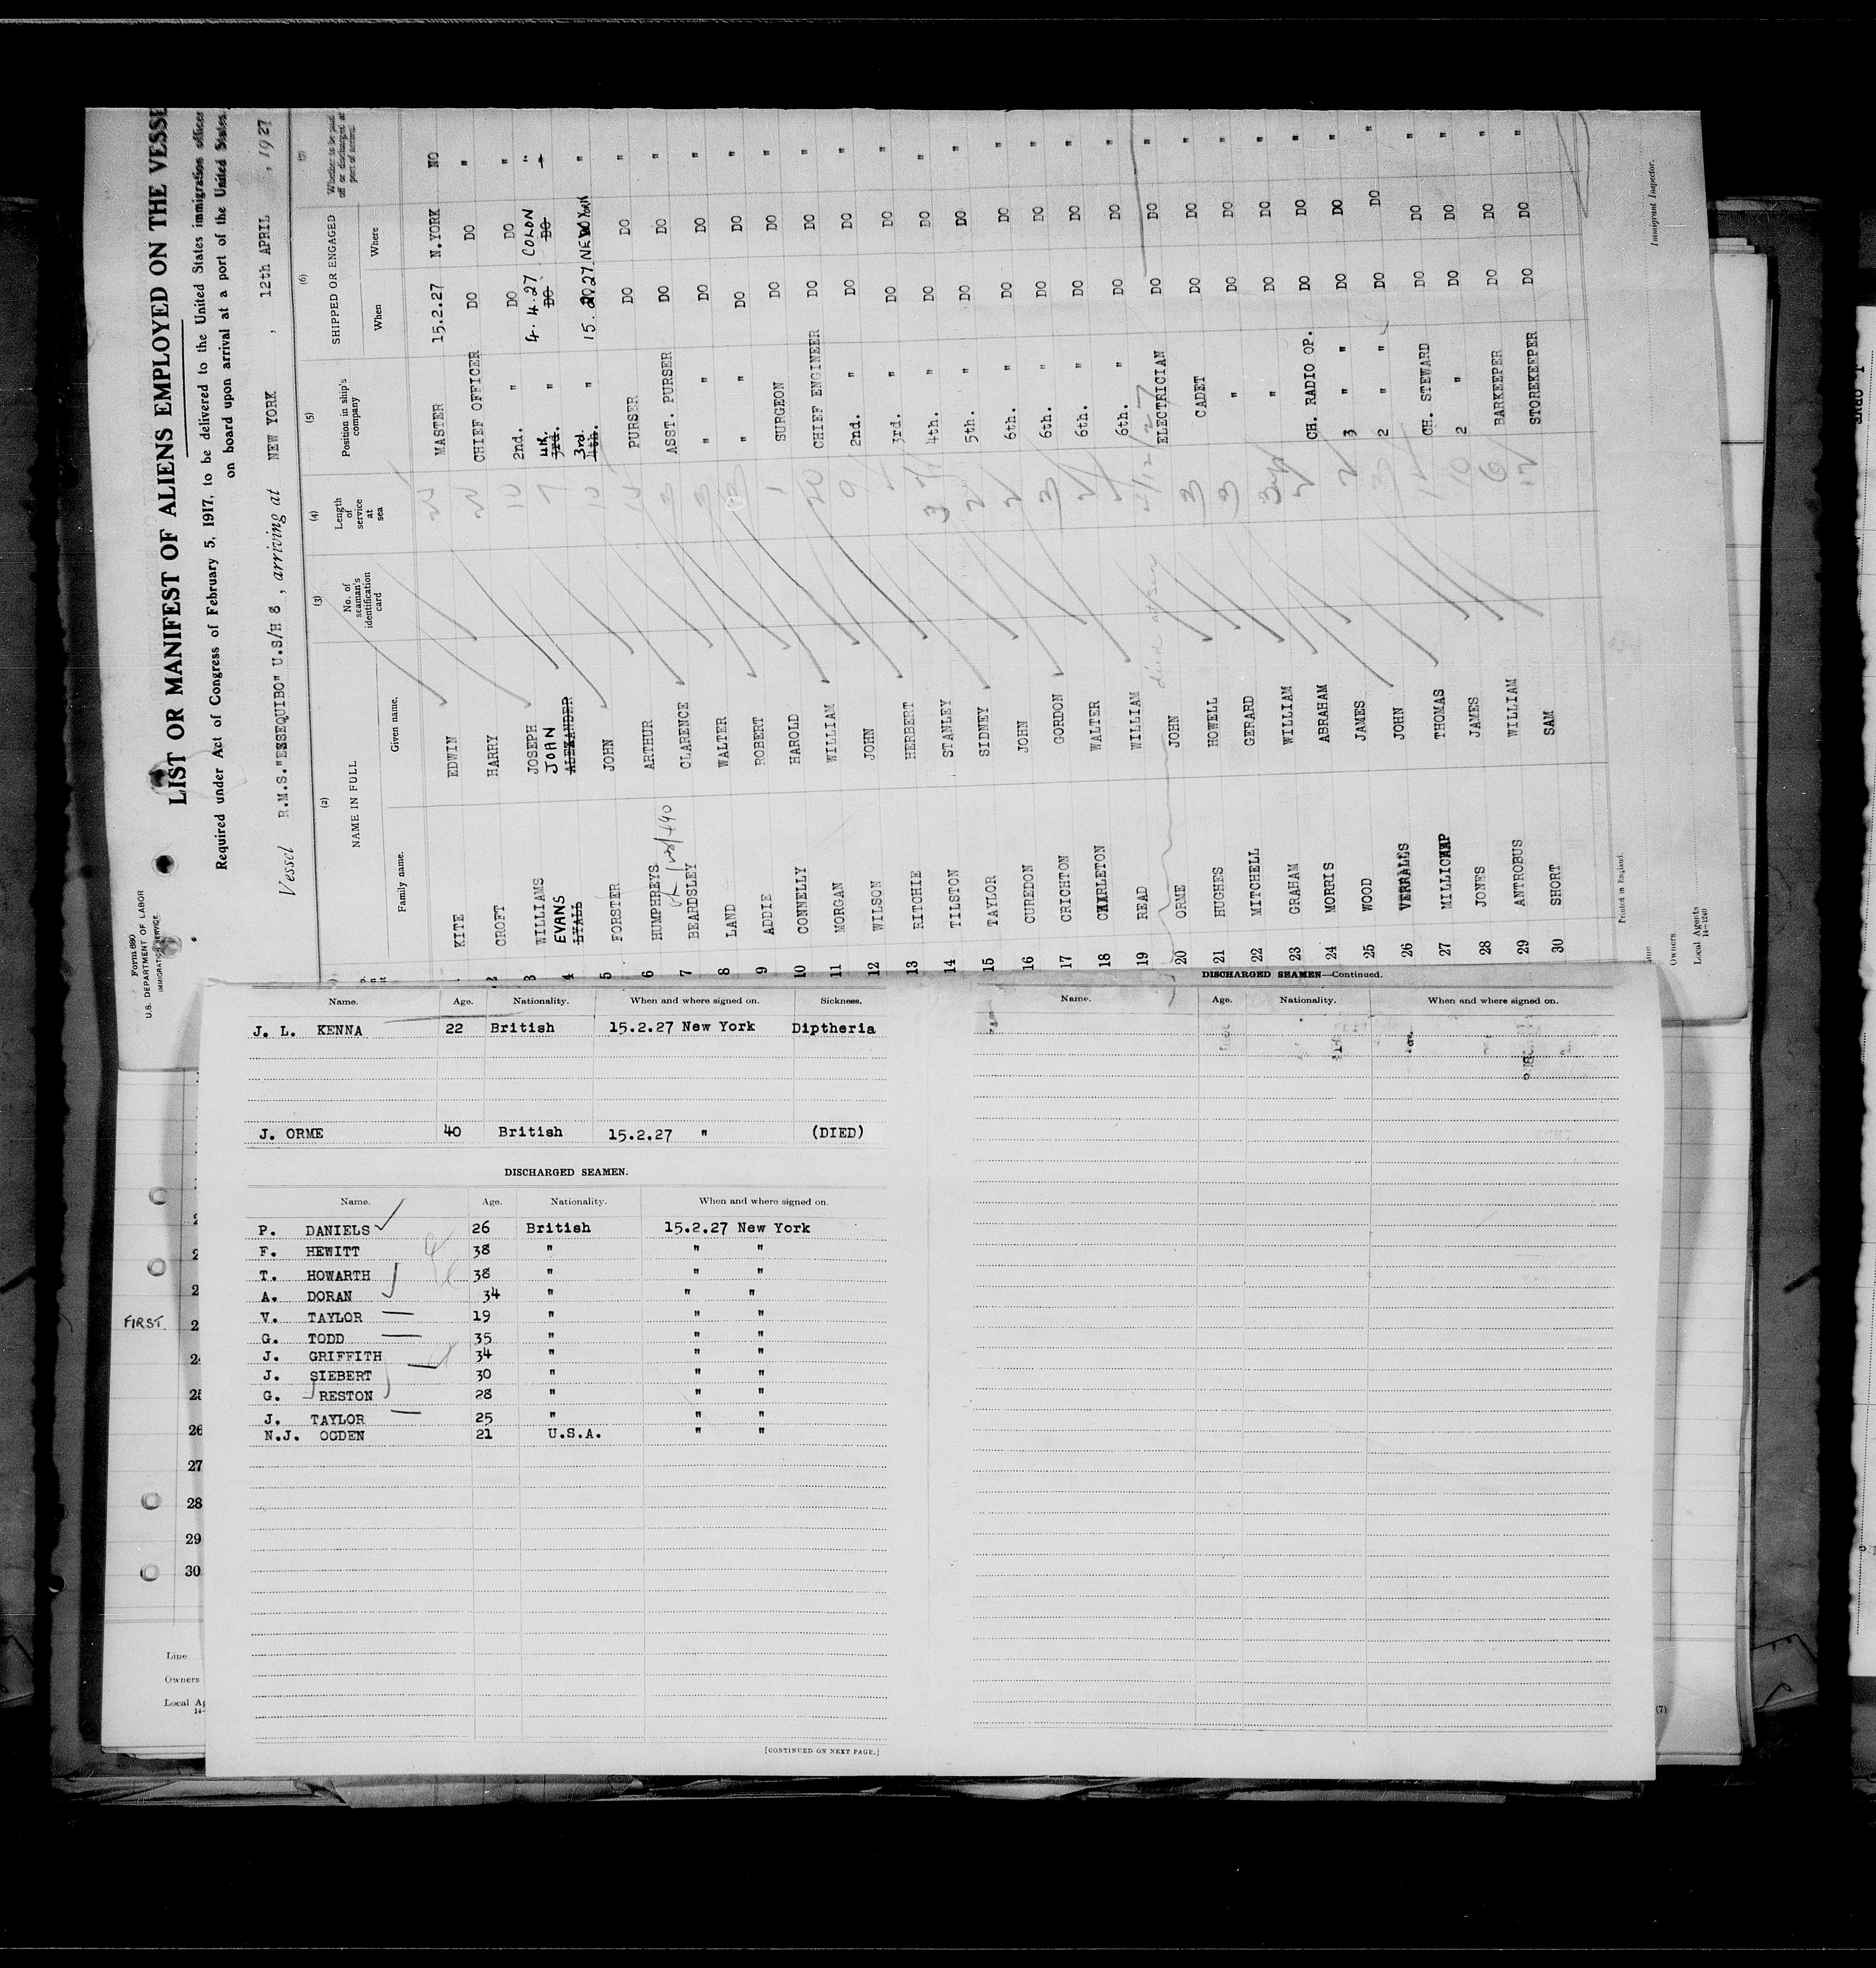 Form 680
U.S. DEPARTMENT OF LABOR
IMMIGRATION SERVICE
LIST OR MANIFEST OF ALIENS EMPLOYED ON THE VESSE
Required under Act of Congress of February 5, 1917, to be delivered to the United States immigration officer
on board upon arrival at a port of the United States.
Vessel R.M.S."ESSEQUIBO" U.S/H 8, arriving at NEW YORK, 12th APRIL, 1927
(2) (3) (4) (5) (6)
NAME IN FULL
Family name. Given name.
No. of seaman's identification card
Length of service at sea
Position in ship's company
SHIPPED OR ENGAGED
When Where
Whether to be paid off or discharged at port of arrival
KITE EDWIN MASTER 15.2.27 N.YORK NO
2 CROFT HARRY CHIEF OFFICER DO DO "
3 WILLIAMS JOSEPH 10 2nd. " DO DO "
EVANS JOHN 4th. 4.4.27 COLON "
4 LYALL ALEXANDER 7 3rd. " DO DO "
5 FORSTER JOHN 10 3rd. 4th. " 15.2.27 NEW YORK "
6 HUMPHREYS ARTHUR PURSER DO DO "
7 BEARDSLEY CLARENCE 3 ASST. PURSER DO DO "
8 LAND WALTER 3 " " DO DO "
9 ADDIE ROBERT " " DO DO "
10 CONNELLY HAROLD 1 SURGEON DO DO "
11 MORGAN WILLIAM 20 CHIEF ENGINEER DO DO "
12 WILSON JOHN 9 2nd. " DO DO "
13 RITCHIE HERBERT 3rd. " DO DO "
14 TILSTON STANLEY 4th. " DO DO "
15 TAYLOR SIDNEY 2 5th. " DO DO "
16 CUREDON JOHN 2 6th. " DO DO "
17 CRICHTON GORDON 3 6th. " DO DO "
18 CHARLETON WALTER 2 6th. " DO DO "
19 READ WILLIAM 6th. " DO DO "
20 ORME JOHN died at sea ELECTRICIAN DO DO "
21 HUGHES HOWELL 3 CADET DO DO "
22 MITCHELL GERARD 3 " DO DO "
23 GRAHAM WILLIAM " DO DO "
24 MORRIS ABRAHAM 2 CH. RADIO OP. DO DO "
25 WOOD JAMES 2 3 " " DO DO "
26 VERRALLS JOHN 2 " " DO DO "
27 MILLICHAP THOMAS CH. STEWARD DO DO "
28 JONES JAMES 10 2 " DO DO "
29 ANTROBUS WILLIAM 6 BARKEEPER DO DO "
30 SHORT SAM STOREKEEPER DO DO "
Printed in England.
Immigrant Inspector.
Owners
Local Agents
14-1240
Name. Age. Nationality. When and where signed on. Sickness.
J. L. KENNA 22 British 15.2.27 New York Diptheria
J. ORME 40 British 15.2.27 " (DIED)
DISCHARGED SEAMEN.
Name. Age. Nationality. When and where signed on.
P. DANIELS 26 British 15.2.27 New York
F. HEWITT 38 " " "
T. HOWARTH 38 " " "
A. DORAN 34 " " "
V. TAYLOR 19 " " "
G. TODD 35 " " "
J. GRIFFITH 34 " " "
J. SIEBERT 30 " " "
G. RESTON 28 " " "
J. TAYLOR 25 " " "
N.J. OGDEN 21 U.S.A. " "
[CONTINUED ON NEXT PAGE.]
DISCHARGED SEAMEN—Continued.
Name. Age. Nationality. When and where signed on.
FIRST
24
25
26
27
28
29
30
Line
Owners
Local Ag
14-
(7)